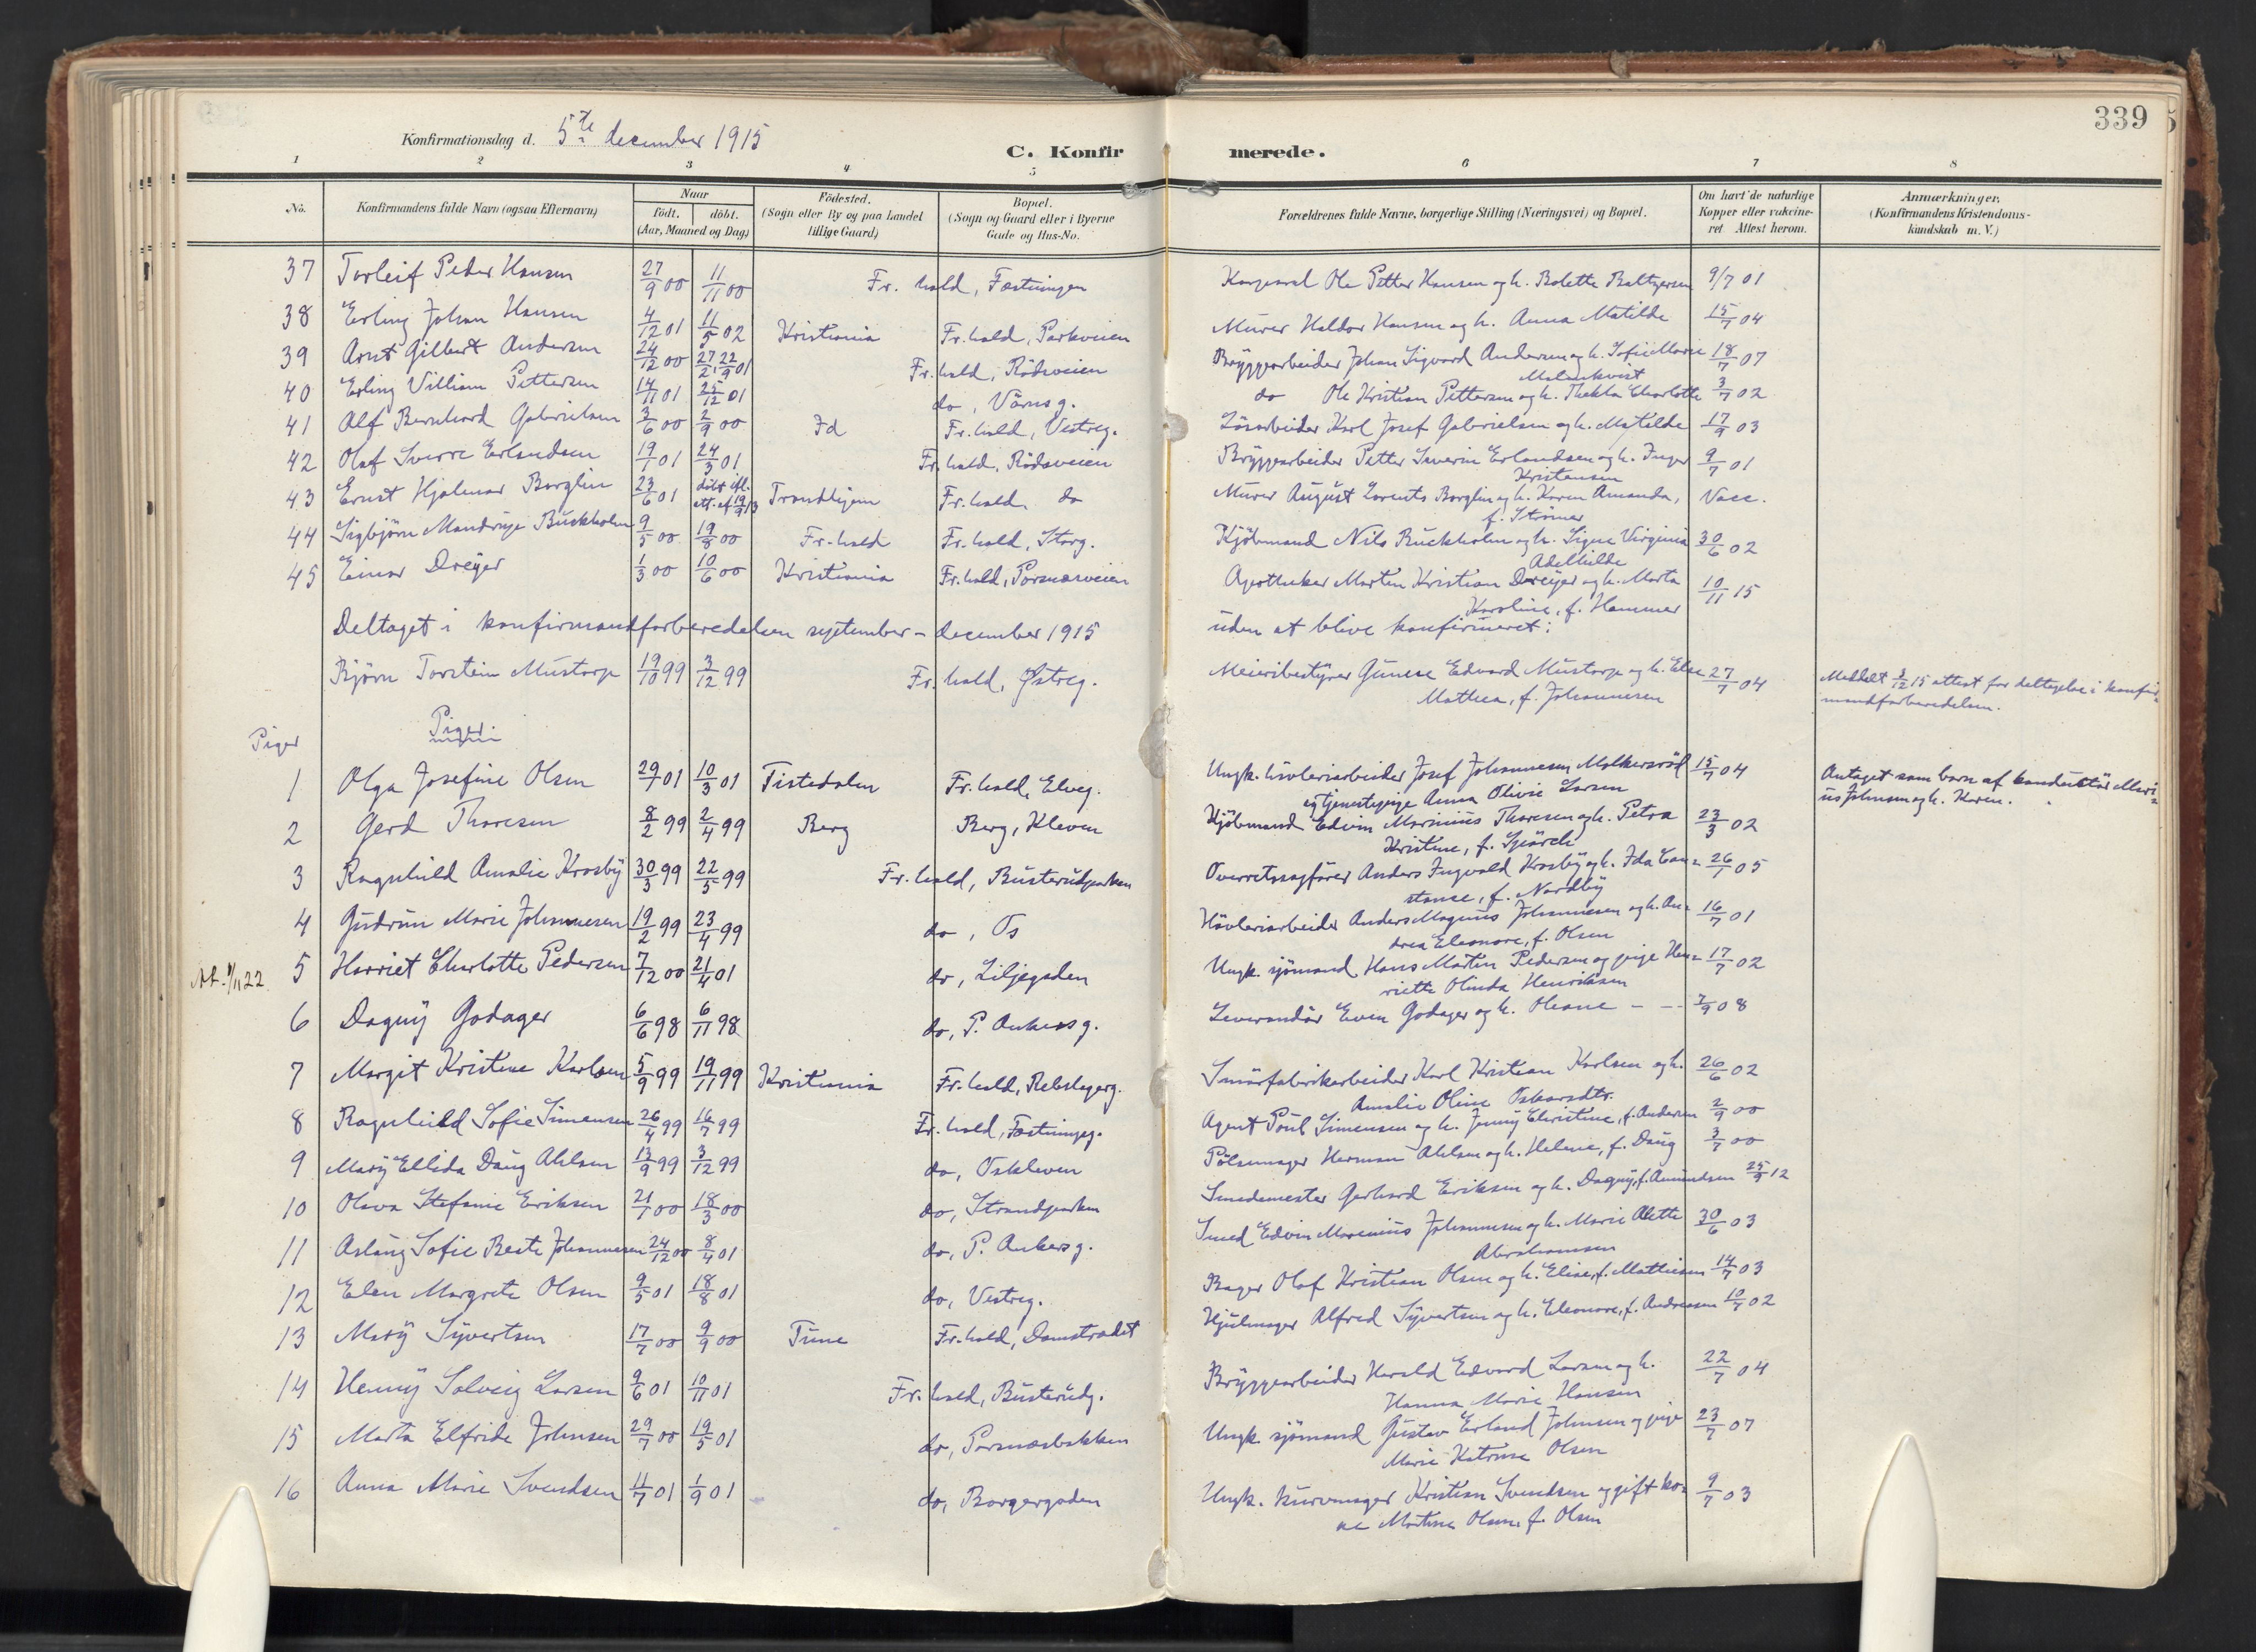 339
Konfirmationsdag d. 5te december 1915
C. Konfirmerede.
1 2 3 4 5 6 7 8
No. Konfirmandens fulde Navn (ogsaa Efternavn) Naar født. døbt. (Aar, Maaned og Dag) Födested. (Sogn eller By og paa Landet tillige Gaard) Bopæl. (Sogn og Gaard eller i Byerne Gade og Hus-No. Forældrenes fulde Navne, borgerlige Stilling (Næringsvei) og Bopæl. Om havt de naturlige Kopper eller vakcineret Attest herom. Anmærkninger. (Konfirmandens Kristendomskundskab m. V.)
37 Torleif Peder Hansen 27/9 00 11/11 00 Fr. hald, Fæstningen Korporal Ole Petter Hansen og h. Bolette Baltzersen 9/7 01
38 Erling Johan Hansen 4/12 01 11/5 02 Kristiania Fr. hald, Parkveien Murer Haldor Hansen og h. Anna Matilde 15/7 04
39 Arnt Gilbert Andersen 24/12 00 27/2, 22/9 01 Fr. hald, Rödsveien Bryggearbeider Johan Sigvard Andersen og h. Sofie Marie Malmkvist 18/7 07
40 Erling Villiam Pettersen 14/11 01 25/12 01 do, Värnsg. do Ole Kristian Pettersen og h. Thekla Charlotte 3/7 02
41 Alf Bernhard Gabrielsen 3/6 00 2/9 00 Id Fr. hald, Vestreg. Lösarbeider Karl Josef Gabrielsen og h. Matilde 17/9 03
42 Olaf Sverre Erlandsen 19/1 01 24/3 01 Fr. hald, Rödsveien Bryggearbeider Petter Severin Erlandsen og h. Inger Kristensen 9/7 01
43 Ernst Hjalmar Borglin 23/6 01 döbt ifl. att. af 19/9 13 Trondhjem Fr. hald, do Murer August Lorents Borglin og h. Karen Amanda, f. Strömer Vacc.
44 Sigbjörn Mandrup Buckholm 9/5 00 19/8 00 Fr. hald Fr. hald, Storg. Kjöbmand Nils Buckholm og h. Signe Virginia Adelhilde 30/6 02
45 Einar Dreyer 1/3 00 10/6 00 Kristiania Fr. hald, Porsnæsveien Apotheker Morten Kristian Dreyer og h. Marta Karoline, f. Hammer 10/11 15
Deltaget i konfirmandforberedelsen september - december 1915 uden at blive konfirmeret:
Björn Torstein Mustorp 19/10 99 3/12 99 Fr. hald, Østreg. Meieribestyrer Gunerus Edvard Mustorp og h. Else Mathea, f. Johannesen 27/7 04 Meddelt 3/12 15 attest for deltagelse i konfirmandforberedelsen.
Piger Piger:
1 Olga Josefine Olsen 29/1 01 10/3 01 Tistedalen Fr. hald, Elveg. Ungk. hövleriarbeider Josef Johannesen Molkersröd og tjenestepige Anna Olivie Larsen 15/7 04 Antaget som barn af konduktör Marius Johnsen og h. Karen.
2 Gerd Thoresen 8/2 99 2/4 99 Berg Berg, Kleven Kjöbmand Edvin Marinius Thoresen og h. Petra Kristine, f. 23/3 02
3 Ragnhild Amalie Krosby 30/3 99 22/5 99 Fr. hald, Busterudparken Overretssagförer Anders Ingvald Krosby og h. Ida Constance, f. Nordby 26/1 05
4 Gudrun Marie Johannesen 19/2 99 23/4 99 do, Os Hövleriarbeider Anders Magnus Johannesen og h. Andrea Eleonore, f. Olsen 16/7 01
Att. 1/11 22. 5 Harriet Charlotte Pedersen 7/12 00 21/4 01 do, Liljegaden Ungk. sjömand Hans Martin Pedersen og pige Henriette Olinda Henriksen 17/7 02
6 Dagny Godager 6/6 98 6/11 98 do, P. Ankersg. Leverandör Even Godager og h. Oleane - - 7/9 08
7 Margit Kristine Karlsen 5/9 99 19/11 99 Kristiania Fr. hald, Rebslagerg. Smörfabrikarbeider Karl Kristian Karlsen og h. Amalie Oline Oskarsdtr. 26/6 02
8 Ragnhild Sofie Simensen 26/4 99 16/7 99 Fr. hald, Fæstningsg. Agent Poul Simensen og h. Jenny Christine, f. Andersen 2/9 00
9 Mary Ellida Daug Ahlsen 13/9 99 3/12 99 do, Oskleven Pölsemager Herman Ahlsen og h. Helene, f. Daug 3/7 00
10 Olava Stefanie Eriksen 21/1 00 18/3 00 do, Strandparken Smedemester Gerhard Eriksen og h. Dagny, f. Amundsen 25/9 12
11 Aslaug Sofie Beate Johannesen 24/12 00 8/4 01 do, P. Ankersg. Smed Edvin Marenius Johannesen og h. Marie Alette Abrahamsen 30/6 03
12 Elen Margrete Olsen 9/5 01 18/8 01 do, Vestreg. Bager Olaf Kristian Olsen og h. Elise, f. Mathisen 14/7 03
13 Mary Syvertsen 17/7 00 9/9 00 Tune Fr. hald, Damstrædet Hjulmager Alfred Syvertsen og h. Eleonore, f. Andreassen 10/7 02
14 Henny Solveig Larsen 9/6 01 10/11 01 Fr. hald, Busterudg. Bryggearbeider Harald Edvard Larsen og h. Hanna Marie Hansen 22/7 04
15 Marta Elfride Johnsen 29/7 00 19/5 01 do, Porsnæsbakken Ungk. sjömand Gustav Erland Johnsen og pige Marie Katrine Olsen 23/7 07
16 Anna Marie Svendsen 11/7 01 1/9 01 do, Borgergaden Ungk. kurvmager Kristian Svendsen og gift kone Martine Olsen f. Olsen 9/7 03